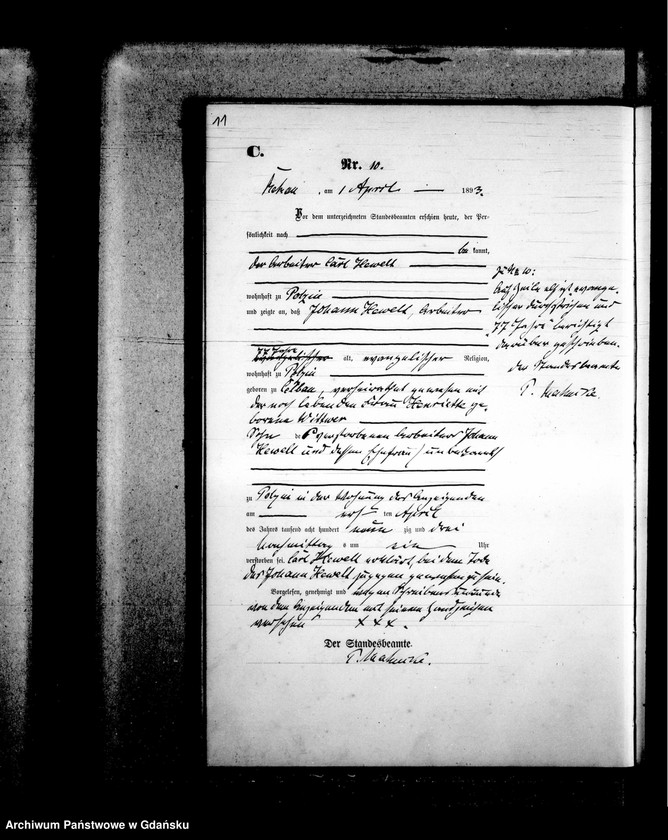 11
C.
Nr. 10.
am 1 April 1893.
Vor dem unterzeichneten Standesbeamten erschien heute, der Per-
sönlichkeit nach
be kannt,
der Arbeiter Carl Hewelt
wohnhaft zu Polzin
und zeigte an, daß Johann Hewelt, Arbeiter
77 Jahre
evangelischer alt, evangelischer Religion,
wohnhaft zu Polzin
geboren zu verheirathet gewesen mit
der noch lebenden Frau Henriette ge-
borene Wittwer
Sohn des verstorbenen Arbeiters Johann
Hewelt und dessen Ehefrau, unbekannt
zu Polzin in der Wohnung des Anzeigenden
am ersten April
des Jahres tausend acht hundert neun zig und drei
Nachmittag s um ein Uhr
verstorben sei. Carl Hewelt erklärt, bei dem Tode
des Johann Hewelt zugegen gewesen zu sein.
Vorgelesen, genehmigt und wegen
von dem Anzeigenden mit seinem Handzeichen
versehen + + +.
Der Standesbeamte.
Zu No 10:
evange-
lischer durchstrichen und
"77 Jahre" berichtigt
darüber geschrieben.
der Standesbeamte
Archiwum Państwowe w Gdańsku